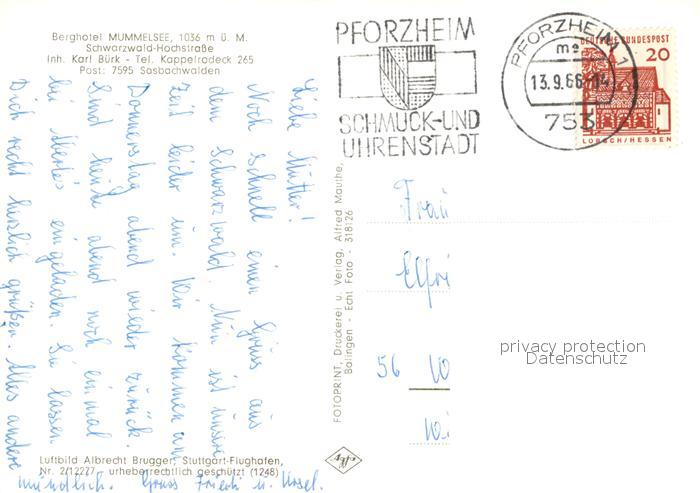 Berghotel MUMMELSEE, 1036 m ü. M.
Schwarzwald-Hochstraße
Inh. Karl Bürk - Tel. Kappelrodeck 265
Post: 7595 Sasbachwalden
PFORZHEIM
SCHMUCK-UND
UHRENSTADT
PFORZHEIM 1
ma
13.9.66-14
753
DEUTSCHE BUNDESPOST
20
LORSCH/HESSEN
Liebe Mutter!
Noch schnell einen Gruss aus
dem Schwarzwald. Nun ist unsere
Zeit leider um. Wir kommen am
Donnerstag abend wieder zurück.
Sind heute abend noch einmal
bei eingeladen. Sie lassen
Dich recht herzlich grüßen. Alles andere
mündlich. Gruss u.
FOTOPRINT, Druckerei u. Verlag, Alfred Mauthe,
Balingen - Echt Foto - 318126
Frau
Elfri
56 W
Wi
privacy protection
Datenschutz
Luftbild Albrecht Brugger, Stuttgart-Flughafen,
Nr. 2/12277 - urheberrechtlich geschützt (1248)